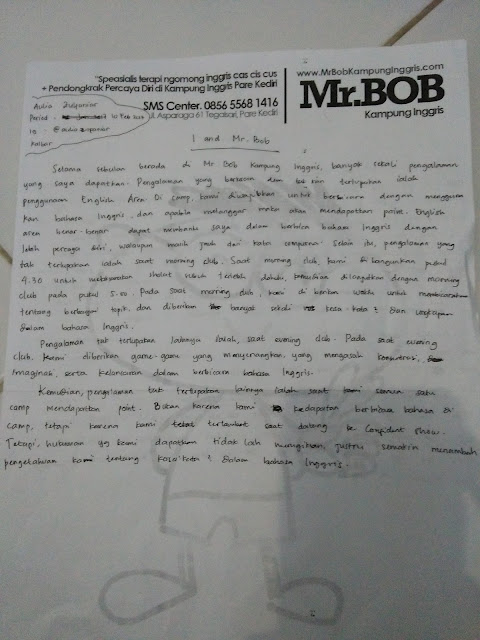 "Speasialis terapi ngomong inggris cas cis cus
+ Pendongkrak Percaya Diri di Kampung Inggris Pare Kediri
SMS Center. 0856 5568 1416
Jl. Asparaga 61 Tegalsari, Pare Kediri
www.MrBobKampungInggris.com
Mr.BOB
Kampung Inggris
Aulia Zulyaniar
Period : 10 Feb
IG : @aulia zulyaniar
Kalbar
I and Mr. Bob
Selama sebulan berada di Mr Bob Kampung Inggris, banyak sekali pengalaman
yang saya dapatkan. Pengalaman yang berkesan dan tak kan terlupakan ialah
penggunaan English Area. Di camp, kami diwajibkan untuk berbicara dengan mengguna
kan bahasa Inggris, dan apabila melanggar maka akan mendapatkan point. English
area benar-benar dapat membantu saya dalam berbicara bahasa Inggris dengan
lebih percaya diri, walaupun masih jauh dari kata sempurna. Selain itu, pengalaman yang
tak terlupakan ialah saat morning club. Saat morning club, kami di bangunkan pukul
4.30 untuk melaksanakan sholat subuh terlebih dahulu, kemudian dilanjutkan dengan morning
club pada pukul 5.00. Pada saat morning club, kami di berikan waktu untuk membicarakan
tentang berbagai topik dan diberikan banyak sekali kosa-kata2 dan ungkapan
dalam bahasa Inggris.
Pengalaman tak terlupakan lainnya ialah, saat evening club. Pada saat evening
club. Kami diberikan game-game yang menyenangkan, yang mengasah konsentrasi,
imaginasi, serta kelancaran dalam berbicara bahasa Inggris.
Kemudian, pengalaman tak terlupakan lainnya ialah saat semua satu
camp mendapatkan point. Bukan karena kami kedapatan berbicara bahasa di
camp, tetapi karena kami telat terlambat saat datang ke Confident Show.
Tetapi, hukuman yg kami dapatkan tidak lah mengikan, justru semakin menambah
pengetahuan kami tentang kosa kata2 dalam bahasa Inggris.